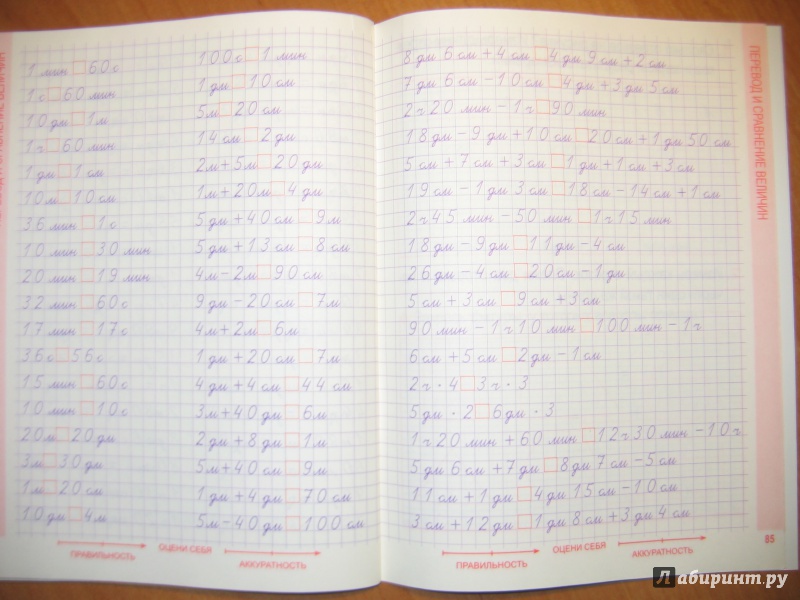 1 мин □ 60 с
1 с □ 60 мин
10 дм □ 1 м
1 г □ 60 мин
1 дм □ 1 см
10 м □ 10 см
36 мин □ 1 с
10 мин □ 30 мин
20 мин □ 19 мин
32 мин □ 60 с
17 мин □ 17 с
36 с □ 56 с
15 мин □ 60 с
10 мин □ 10 с
20 м □ 20 дм
3 м □ 30 дм
1 м □ 20 см
10 дм □ 4 м
100 с □ 1 мин
1 дм □ 10 см
5 м □ 20 см
14 см □ 2 дм
2 м + 5 м □ 20 дм
1 м + 20 м □ 4 дм
5 дм + 40 см □ 9 м
5 дм + 13 см □ 8 см
4 м - 2 м □ 90 см
9 дм - 20 см □ 7 м
4 м + 2 м □ 6 м
1 дм + 20 см □ 7 м
4 дм + 4 см □ 44 см
3 м + 40 дм □ 6 м
2 дм + 8 дм □ 1 м
5 м + 40 см □ 9 м
1 дм + 4 дм □ 70 см
5 м - 40 дм □ 100 см
ПРАВИЛЬНОСТЬ
ОЦЕНИ СЕБЯ
АККУРАТНОСТЬ
8 дм 6 см + 4 см □ 4 дм 9 см + 2 см
7 дм 6 см - 10 см □ 4 дм + 3 дм 5 см
2 ч 20 мин - 1 ч □ 90 мин
18 дм - 9 дм + 10 см □ 20 см + 1 дм 50 см
5 см + 7 см + 3 см □ 1 дм + 1 см + 3 см
19 см - 1 дм 3 см □ 18 см - 14 см + 1 см
2 ч 45 мин - 50 мин □ 1 ч 15 мин
18 дм - 9 дм □ 11 дм - 4 см
26 дм - 4 см □ 20 см - 1 дм
5 см + 3 см □ 9 см + 3 см
90 мин - 1 ч 10 мин □ 100 мин - 1 ч
6 см + 5 см □ 2 дм - 1 см
2 ч · 4 □ 3 ч · 3
5 дм · 2 □ 6 дм · 3
1 ч 20 мин + 60 мин □ 12 ч 30 мин - 10 ч
5 дм 6 см + 7 дм □ 8 дм 7 см - 5 см
11 см + 1 дм □ 4 дм 15 см - 10 см
3 см + 12 дм □ 1 дм 8 см + 3 дм 4 см
ПРАВИЛЬНОСТЬ
ОЦЕНИ СЕБЯ
АККУРАТНОСТЬ
ПЕРЕВОД И СРАВНЕНИЕ ВЕЛИЧИН
85
Лабиринт.ру